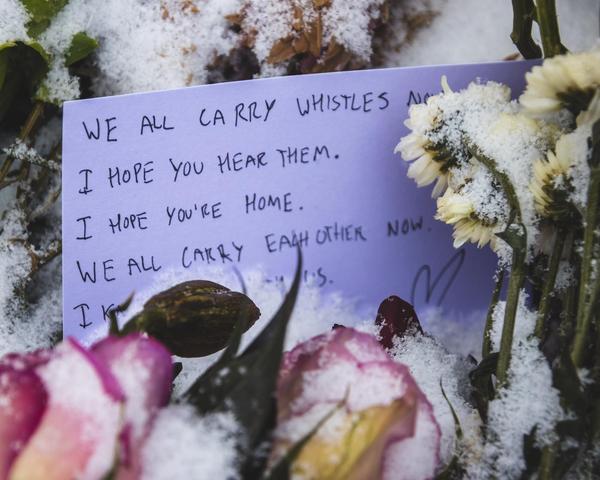 WE ALL CARRY WHISTLES
I HOPE YOU HEAR THEM.
I HOPE YOU'RE HOME.
WE ALL CARRY EACH OTHER NOW.
I